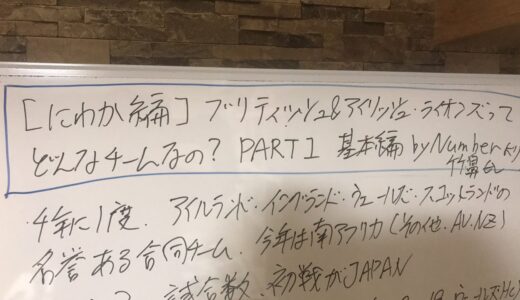 [にわか編] ブリティッシュ&アイリッシュ・ライオンズって
どんなチームなの? PART1 基本編 by Number
・4年に1度、アイルランド・イングランド・ウェールズ・スコットランドの
名誉ある合同チーム。今年は南アフリカ (その他、AU、NZ)
試合数、初戦がJAPAN